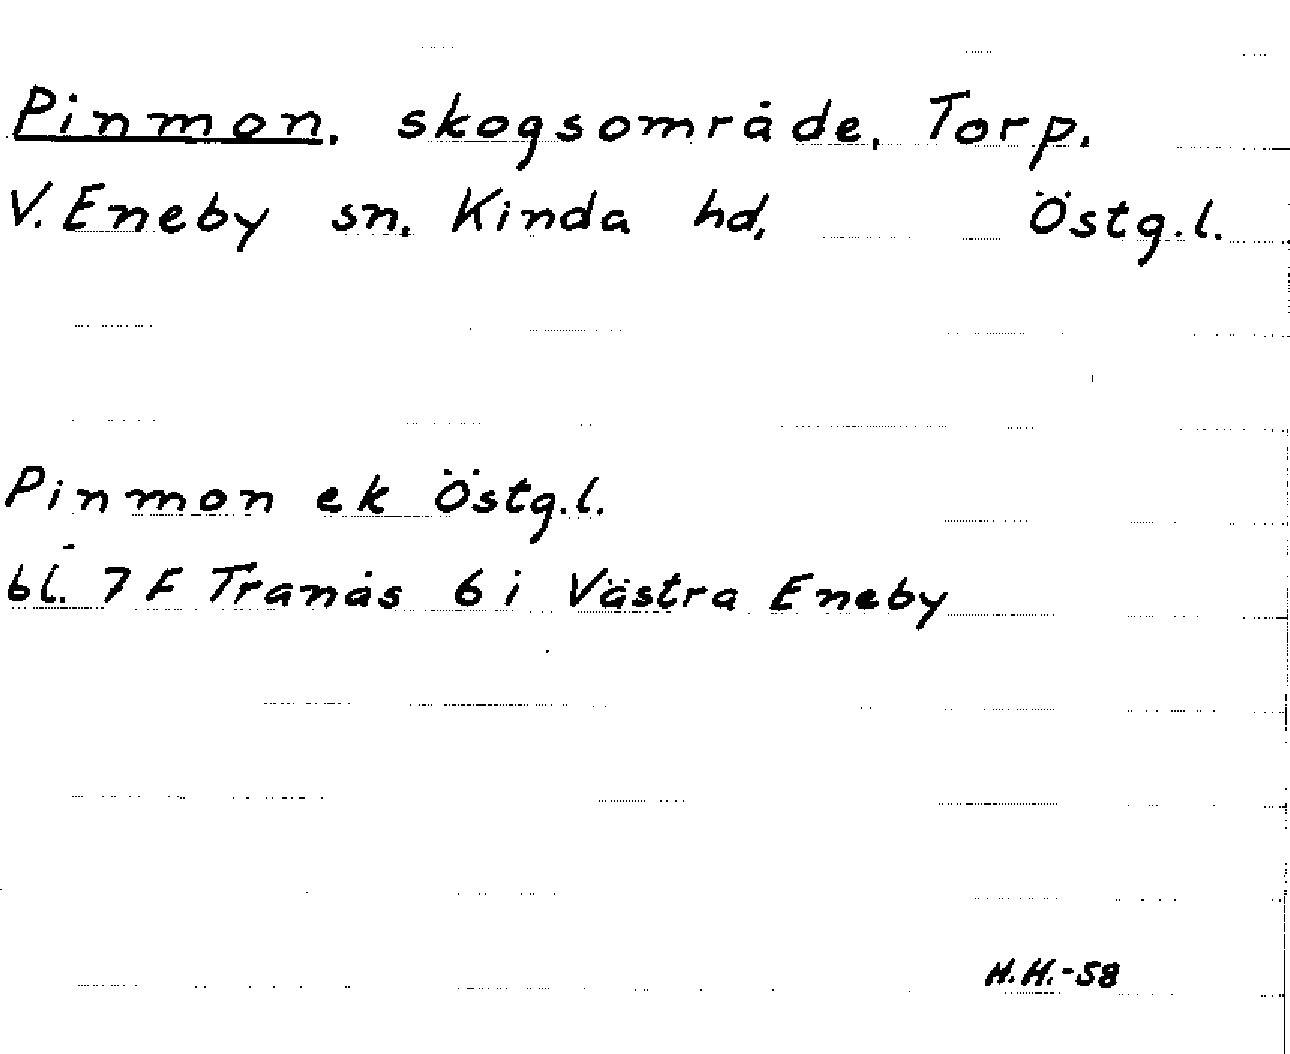 Pinmon. skogsområde. Torp.
V. Eneby sn. Kinda hd, Östg.l.
Pinmon ek Östg.l.
bl. 7 F Tranås 6 i Västra Eneby
H.H.-58